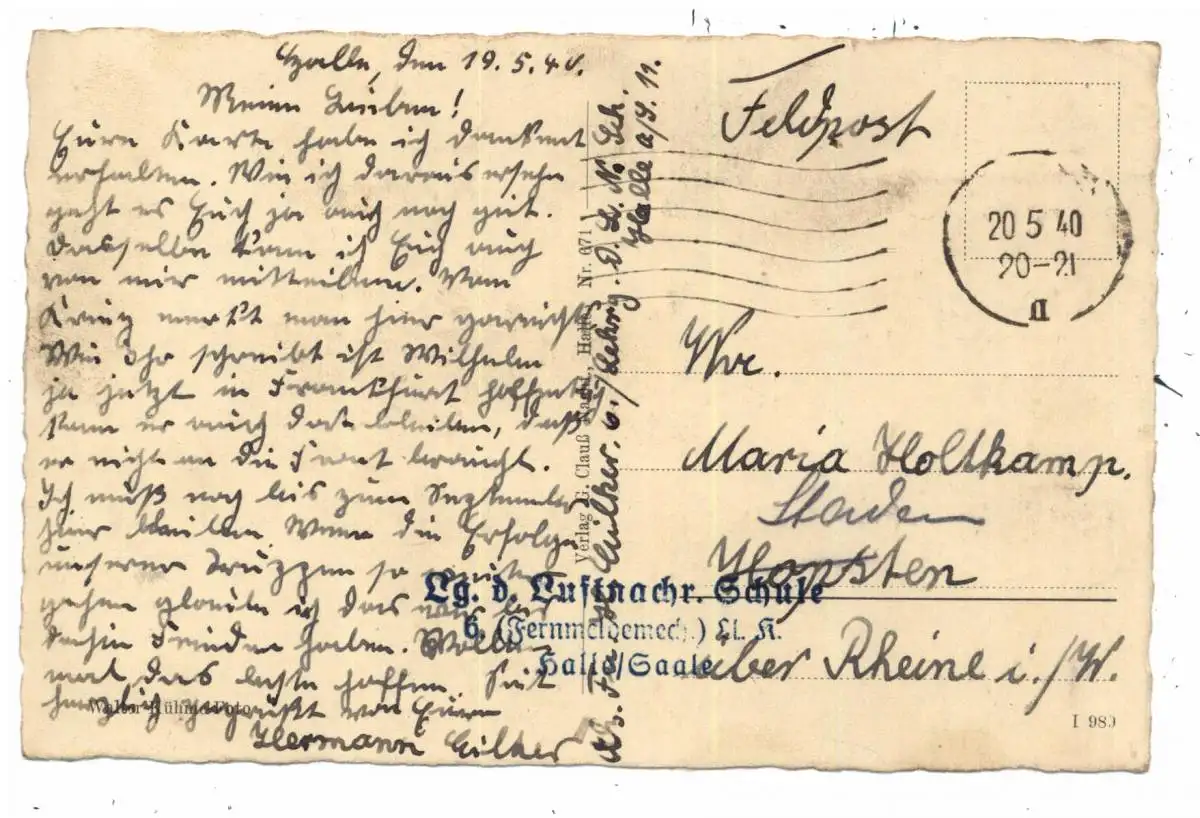 Halle, den 19.5.40.
Meine Lieben!
Eure Karte habe ich dankent
erhalten. Wie ich daraus ersehe
geht es Euch ja auch noch gut.
Dasselbe kann ich Euch auch
von mir mitteilen. Vom
Krieg merkt man hier garnichts
Wie Ihr schreibt ist Wilhelm
ja jetzt in Frankfurt hoffentlich
kann er auch dort bleiben, daß
er nicht an die Front braucht.
Ich muß noch bis zum September
hier bleiben. Wenn die Erfolge
unserer Truppen so weiter
gehen glaube ich das wir bis
dahin Frieden haben. Wollen
mal das beste hoffen. Seit
herzlich gegrüßt von Euren
Hermann Eilker
Walter Kühne Foto
Verlag G. Clauß Nachf., Halle Nr. 671
Abs. Eilker. 6./Lehrg. d. L. N. Sch.
Halle a/S. 11.
Feldpost
20 5 40
20-21
Lg. d. Luftnachr. Schule
6. (Fernmeldemech.) Lt. K.
Halle/Saale
Maria Holtkamp.
Staden
Hopsten
über Rheine i./W.
I 989